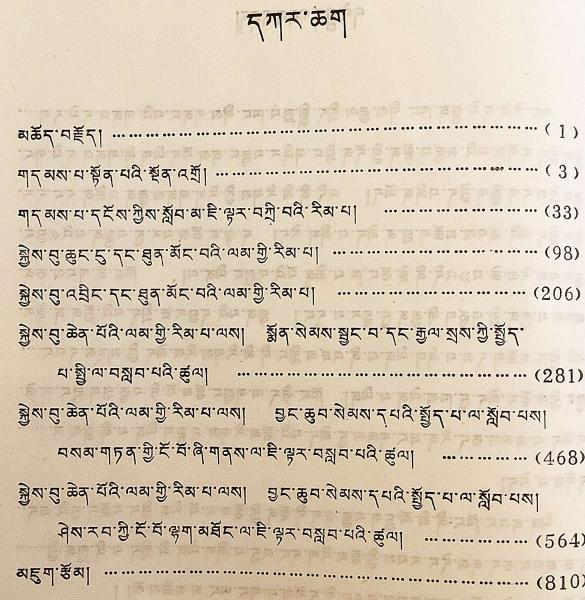 དཀར་ཆག
མཆོད་བརྗོད། ……………………………………………………( 1 )
གདམས་པ་སྟོན་པའི་སྔོན་འགྲོ། ………………………………………( 3 )
གདམས་པ་དངོས་ཀྱིས་སློབ་མ་ཇི་ལྟར་བཀྲི་བའི་རིམ་པ། ………………(33)
སྐྱེས་བུ་ཆུང་ངུ་དང་ཐུན་མོང་བའི་ལམ་གྱི་རིམ་པ། ……………………(98)
སྐྱེས་བུ་འབྲིང་དང་ཐུན་མོང་བའི་ལམ་གྱི་རིམ་པ། ……………………(206)
སྐྱེས་བུ་ཆེན་པོའི་ལམ་གྱི་རིམ་པ་ལས། སྨོན་སེམས་སྦྱང་བ་དང་རྒྱལ་སྲས་ཀྱི་སྤྱོད་
པ་སྤྱི་ལ་བསླབ་པའི་ཚུལ། ………………………………(281)
སྐྱེས་བུ་ཆེན་པོའི་ལམ་གྱི་རིམ་པ་ལས། བྱང་ཆུབ་སེམས་དཔའི་སྤྱོད་པ་ལ་སློབ་པས།
བསམ་གཏན་གྱི་ངོ་བོ་ཞི་གནས་ལ་ཇི་ལྟར་བསླབ་པའི་ཚུལ། …………(468)
སྐྱེས་བུ་ཆེན་པོའི་ལམ་གྱི་རིམ་པ་ལས། བྱང་ཆུབ་སེམས་དཔའི་སྤྱོད་པ་ལ་སློབ་པས།
ཤེས་རབ་ཀྱི་ངོ་བོ་ལྷག་མཐོང་ལ་ཇི་ལྟར་བསླབ་པའི་ཚུལ། …………(564)
མཇུག་རྩོམ། ……………………………………………………(810)